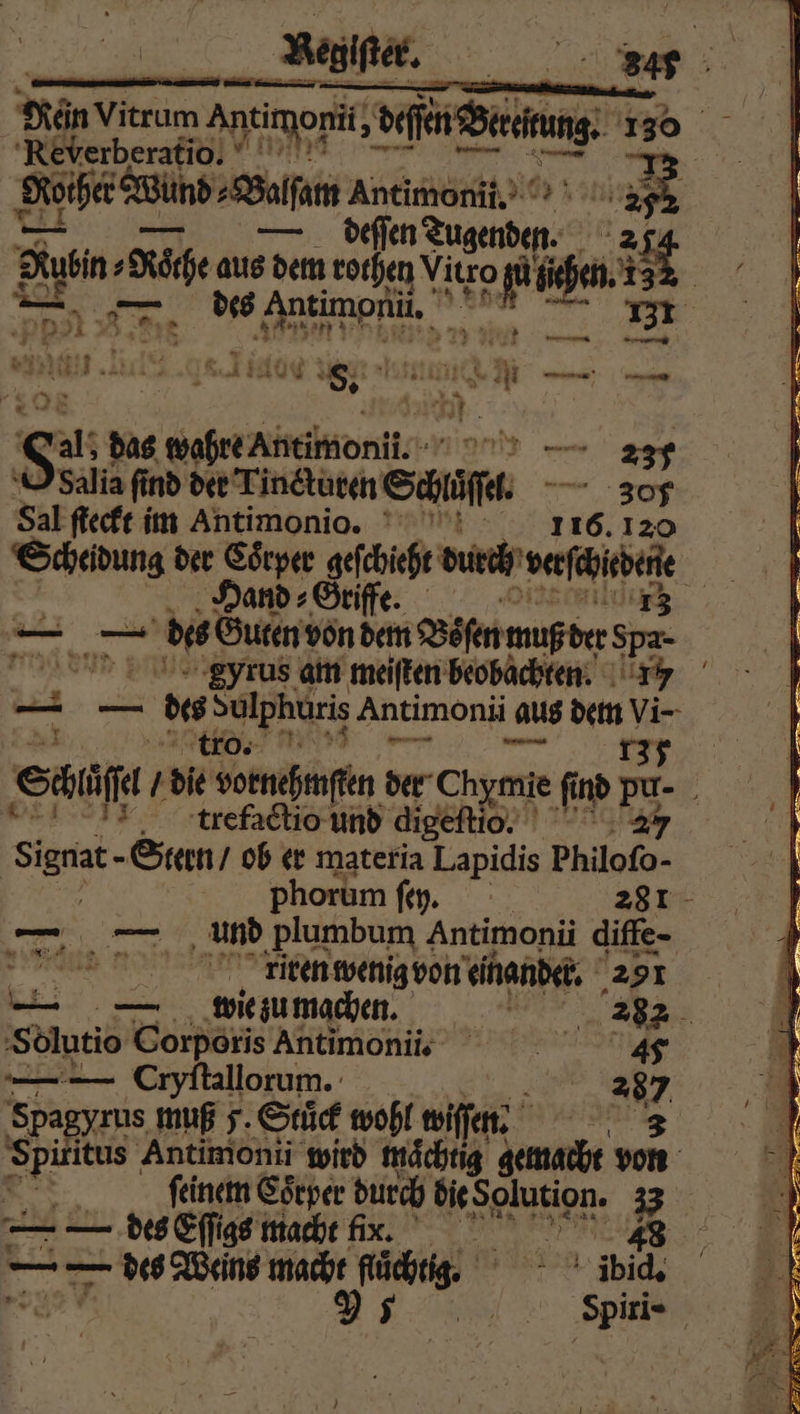 Regiſter. 345
Rein Vitrum Antimonii, deſſen Bereitung. 130
Reverberatio. — — — 13
Rother Wund-Balſam Antimonii. 252
— — — deſſen Tugenden. 254
Rubin-Roͤthe aus dem rothen Vitro zu ziehen. 132
— — des Antimonii. — 131
S.
Sal, das wahre Antimonii. — 235
Salia ſind der Tincturen Schluͤſſel. — 305
Sal ſteckt im Antimonio. 116. 120
Scheidung der Coͤrper geſchieht durch verſchiedene
Hand-Griffe. 13
— — des Guten von dem Boͤſen muß der Spa-
gyrus am meiſten beobachten. 17
— — des Sulphuris Antimonii aus dem Vi-
tro. — — 135
Schluͤſſel / die vornehmſten der Chymie ſind pu-
trefactio und digeſtio. 27
Signat-Stern / ob er materia Lapidis Philoſo-
phorum ſey. 281
— — und plumbum Antimonii diffe-
riren wenig von einander. 291
— — wie zu machen. 282
Solutio Corporis Antimonii. 45
— — Cryſtallorum. 287
Spagyrus muß 5. Stuͤck wohl wiſſen. 3
Spiritus Antimonii wird maͤchtig gemacht von
ſeinem Coͤrper durch die Solution. 33
— — des Eſſigs macht fix. 48
— — des Weins macht fluͤchtig. ibid.
Y 5 Spiri-